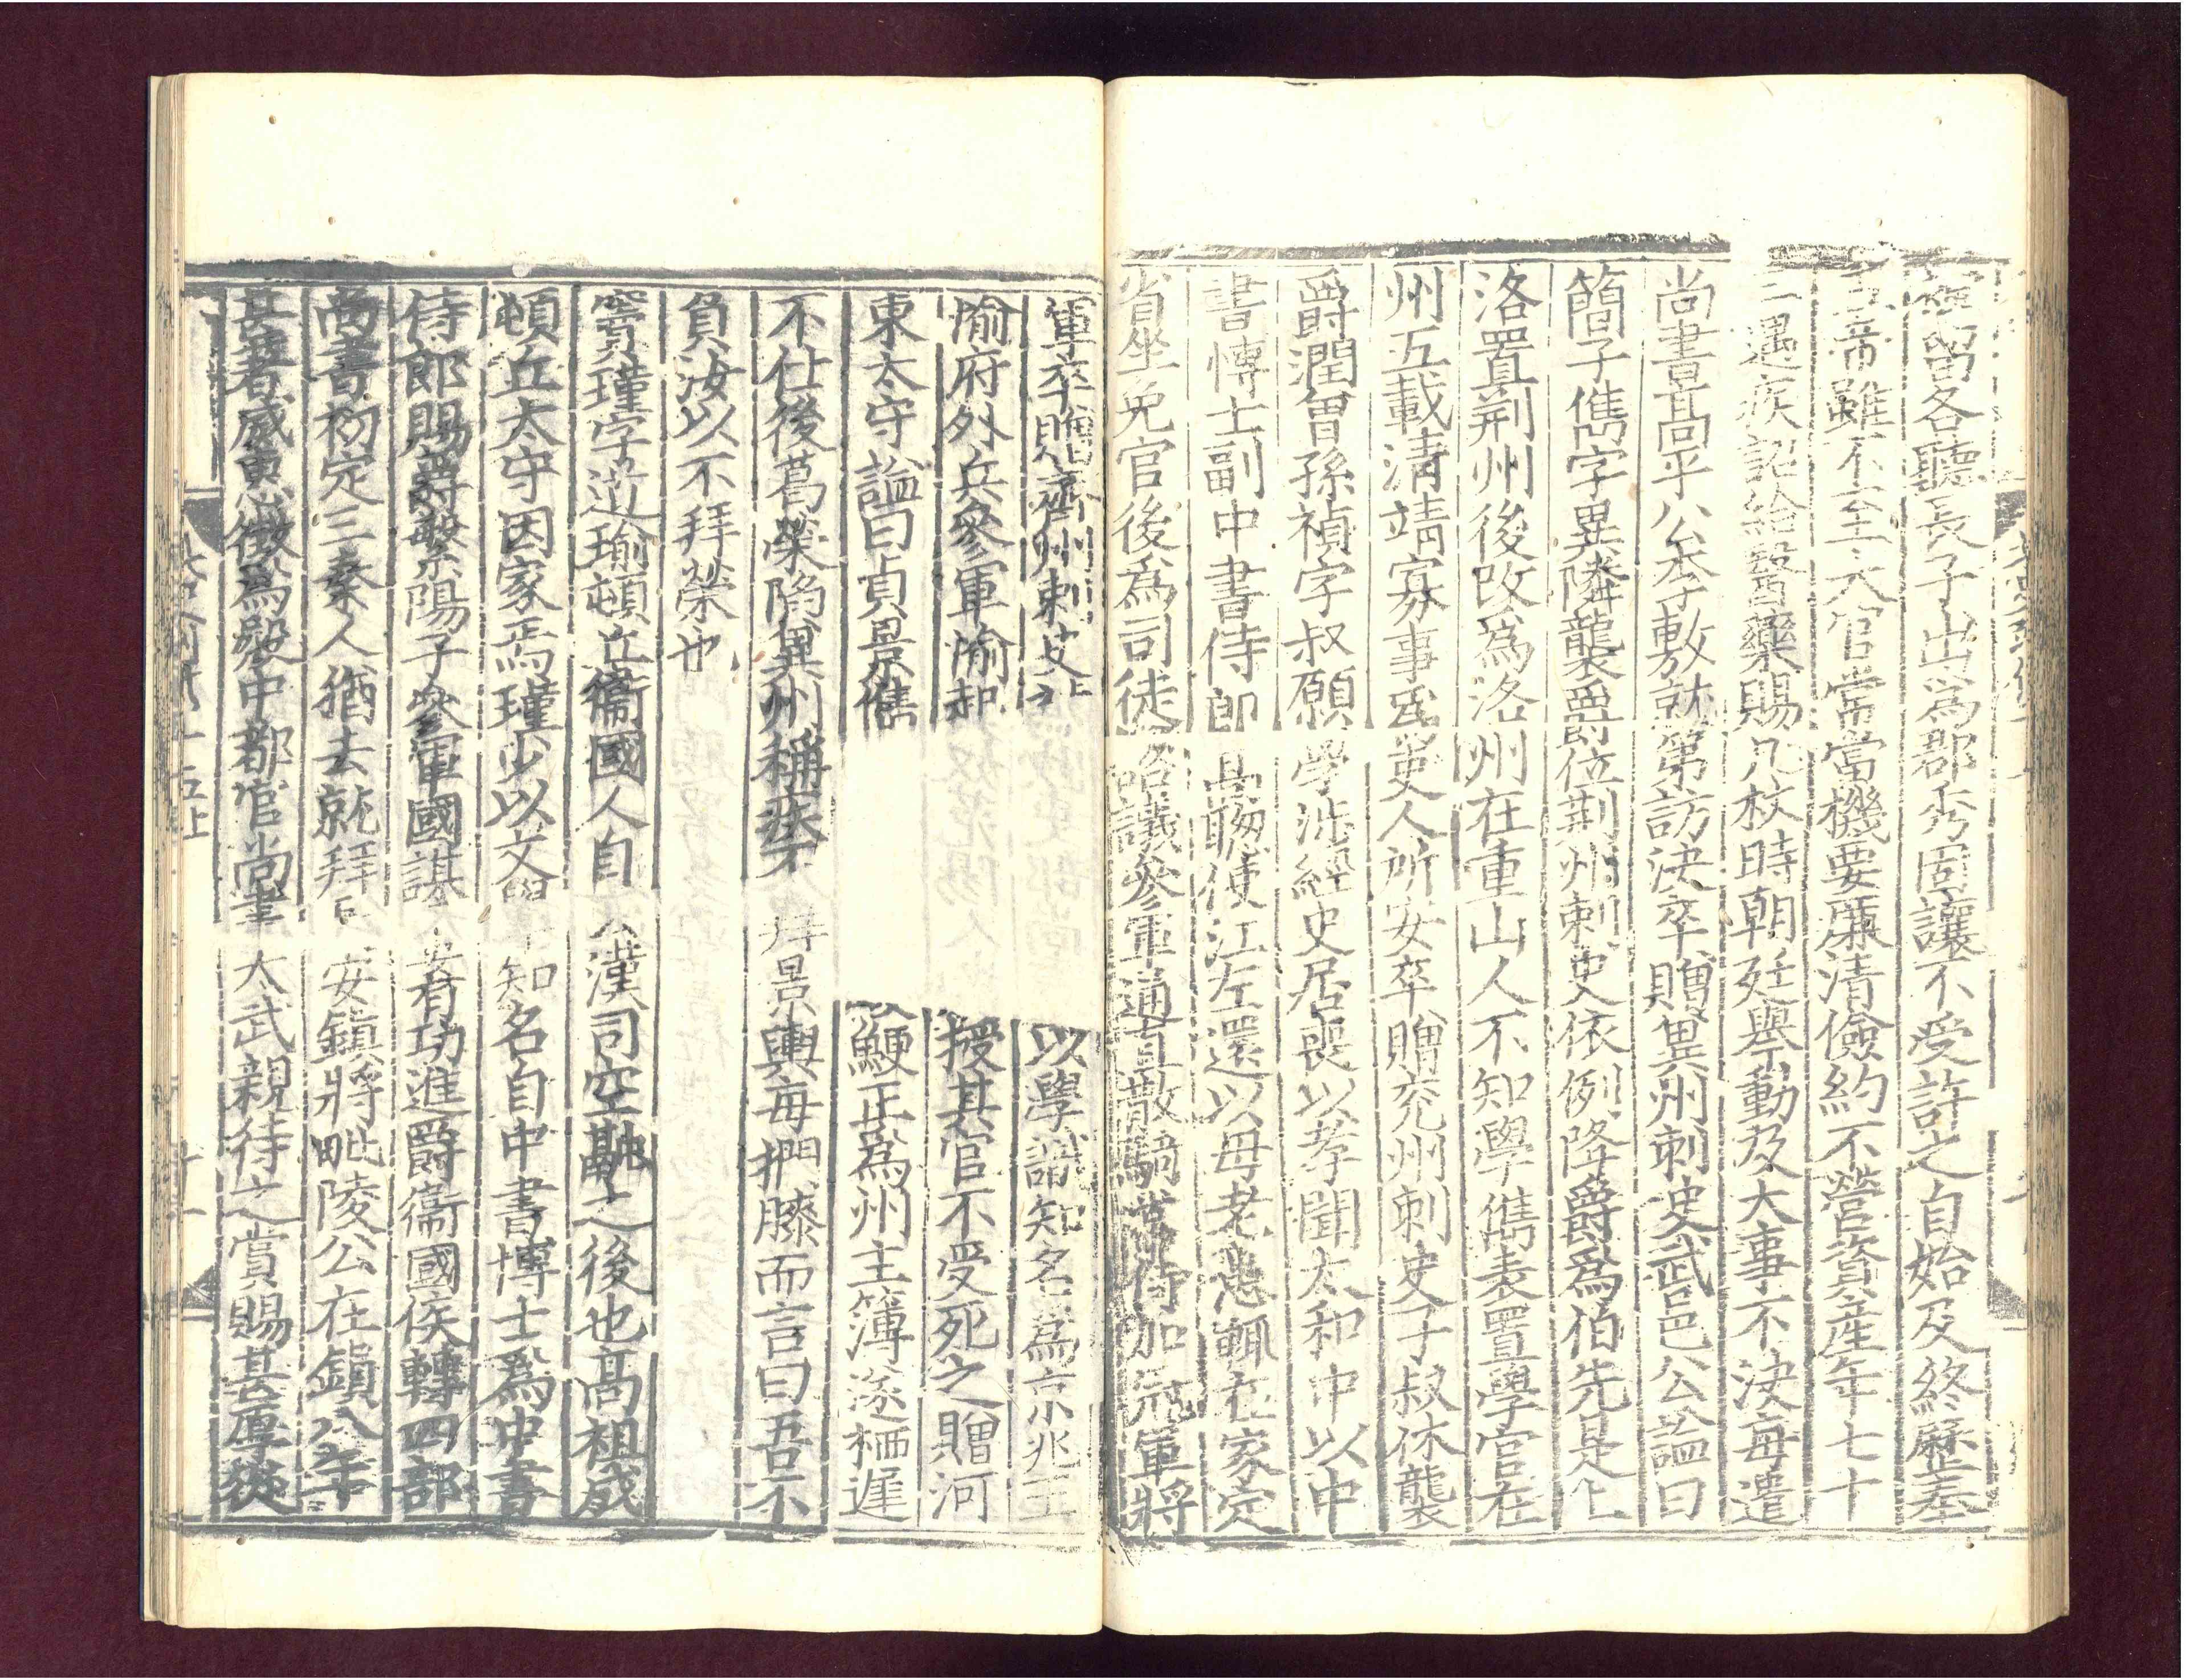 經留各聽長子出爲郡秀固讓不受許之自始及終歷奉
帝雖不至大官常當機要廉清儉約不營資産年七十
三遇疾詔給醫藥賜几杖時朝廷舉動及大事不決每遣
尚書高平公李敷就第訪決卒贈兾州刺史武邑公謚曰
簡子儁字異隣襲爵位荆州刺史依例降爵爲伯先是上
洛置荆州後改爲洛州在重山人不知學儁表置學官在
州五載清靖寡事吏人所安卒贈兖州刺史子叔休襲
爵潤曾孫禎字叔願學涉經史居喪以孝聞太和中以中
書博士副中書侍郎聘使江左還以母老患輒在家定
省坐免官後爲司徒諮議參軍通直散騎常侍加冠軍將
軍卒贈齊州刺史 以學識知名爲京兆王
愉府外兵參軍愉起 授其官不受死之贈河
東太守謚曰貞景儁 鯁正爲州主簿遂栖遲
不仕後葛榮陷兾州稱疾不拜景興每捫膝而言曰吾不
負汝以不拜榮也
竇瑾字道瑜頓丘衞國人自 漢司空融之後也高祖成
頓丘太守因家焉瑾少以文 知名自中書博士爲中書
侍郎賜爵繁陽子參軍國謀 有功進爵衞國侯轉四部
尚書初定三秦人猶去就拜 安鎭將毗陵公在鎭八年
甚著威惠徵爲殿中都官尚書太武親待之賞賜甚厚從